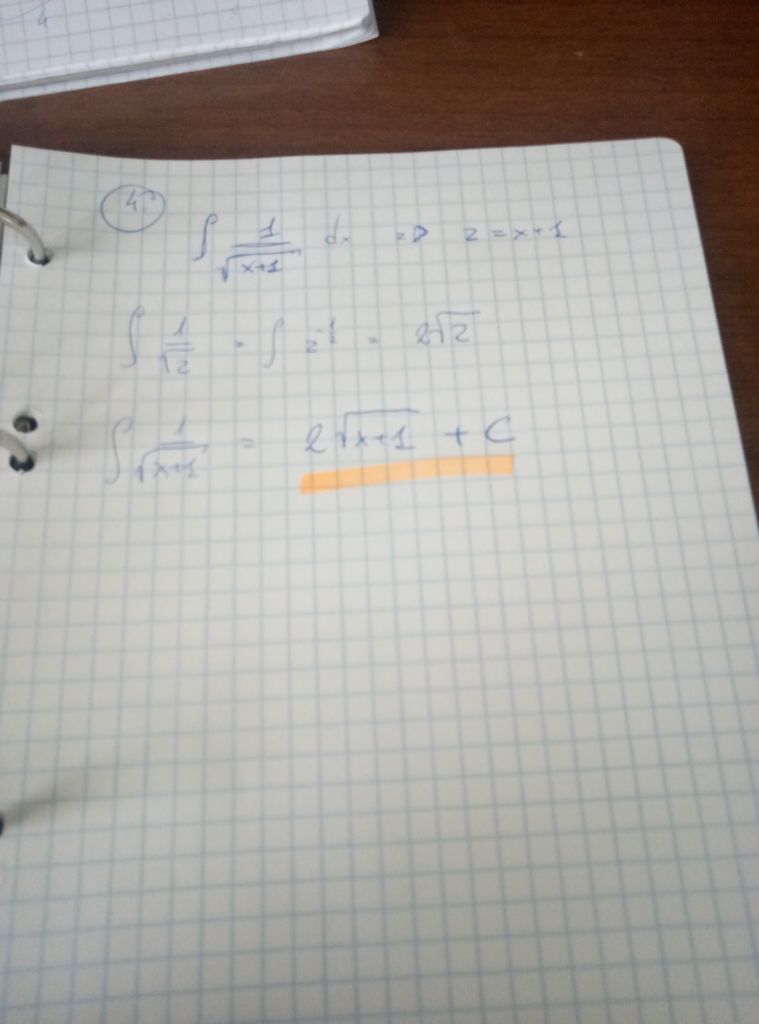 4.
∫ 1/√(x+1) dx => z = x+1
∫ 1/√z = ∫ z^(-1/2) = 2√z
∫ 1/√(x+1) = 2√(x+1) + C